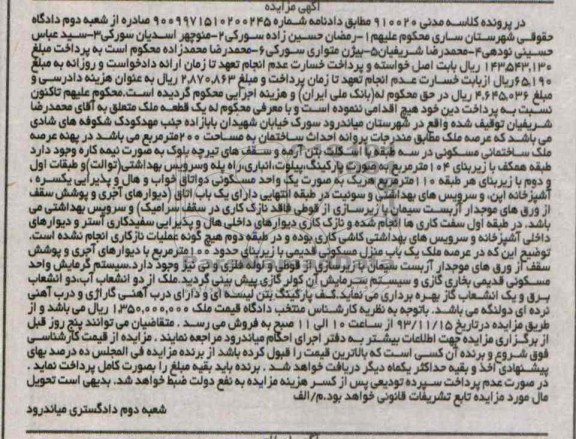 آگهی مزایده
در پرونده کلاسه مدنی ۹۱۰۰۲۰ مطابق دادنامه شماره ۹۰۰۹۹۷۱۵۱۰۲۰۰۲۴۵ صادره از شعبه دوم دادگاه
حقوقی شهرستان ساری محکوم علیهم ۱-رمضان حسین زاده سورکی۲-منوچهر اسدیان سورکی۳-سید عباس
حسینی نودهی۴-محمدرضا شریفیان۵-بیژن متواری سورکی۶-محمدرضا محمدزاده محکوم است به پرداخت مبلغ
۱۴۳,۵۴۳,۱۳۰ ریال بابت اصل خواسته و پرداخت خسارت عدم انجام تعهد تا زمان ارائه دادخواست و روزانه به مبلغ
۶۵,۱۹۰ریال ازبابت خسارت عدم انجام تعهد تا زمان پرداخت و مبلغ ۲,۸۷۰,۸۶۳ ریال به عنوان هزینه دادرسی و
مبلغ ۴,۶۴۵,۰۳۶ ریال در حق محکوم له(بانک ملی ایران) و هزینه اجرایی محکوم گردیده است.محکوم علیهم تاکنون
نسبت به پرداخت دین خود هیچ اقدامی ننموده است و با معرفی محکوم له یک قطعه ملک متعلق به آقای محمدرضا
شریفیان توقیف شده واقع در شهرستان میاندرود سورک خیابان شهیدان بابازاده جنب مهدکودک شکوفه های شادی
می باشد که عرصه ملک مطابق مندرجات پروانه احداث ساختمان به مساحت ۲۰۰مترمربع می باشد در پهنه عرصه
ملک ساختمانی مسکونی در سه طبقه با اسکلت بتن آرمه و سقف های تیرچه بلوک به صورت نیمه کاره وجود دارد
طبقه همکف با زیربنای ۱۰۴مترمربع به صورت پارکینگ،پیلوت،انباری،راه پله وسرویس بهداشتی(توالت)و طبقات اول
و دوم با زیربنای هر طبقه ۱۱۰مترمربع هریک به صورت یک واحد مسکونی دواتاق خواب و هال و پذیرایی یکسره ،
آشپزخانه اپن، و سرویس های بهداشتی و سوئیت در طبقه انتهایی دارای یک باب اتاق (دیوار های آجری و پوشش سقف
از ورق های موجدار آزبست سیمان با زیرسازی از قوطی فاقد نازک کاری در سقف سرامیک) و سرویس بهداشتی می
باشد. در طبقه اول سفت کاری ها انجام شده و نازک کاری دیوارهای داخلی هال و پذیرایی سفیدکاری آستر و دیوارهای
داخلی آشپزخانه و سرویس های بهداشتی کاشی کاری بوده و در طبقه دوم هیچ گونه عملیات نازکاری انجام نشده است.
توضیح این که در عرصه ملک یک باب منزل مسکونی قدیمی با زیربنای حدود ۱۰۰مترمربع با دیوارهای آجری و پوشش
سقف از ورق های موجدار آزبست سیمان با زیرسازی از قوطی و لوله فلزی نیز وجود دارد.سیستم گرمایش واحد
مسکونی قدیمی بخاری گازی و سیستم سرمایش آن کولر گازی پیش بینی گردید.ملک از دو انشعاب آب،دو انشعاب
برق و یک انشعاب گاز بهره برداری می نماید.کف پارکینگ بتن لیسه ای و دارای درب آهنی گاراژی و درب آهنی
نرده ای دولنگه می باشد. باتوجه به نظریه کارشناس منتخب دادگاه قیمت ملک ۱,۳۵۰,۰۰۰,۰۰۰ ریال می باشد و از
طریق مزایده درتاریخ ۹۳/۱۱/۱۵ از ساعت ۱۰ الی ۱۱ صبح به فروش می رسد . متقاضیان می توانند پنج روز قبل
از برگزاری مزایده جهت اطلاعات بیشتر به دفتر اجرای احکام میاندرود مراجعه نمایند . مزایده از قیمت کارشناسی
فوق شروع و برنده آن کسی است که بالاترین قیمت را قبول کرده باشد از برنده مزایده فی المجلس ده درصد بهای
پیشنهادی اخذ و بقیه حداکثر یکماه دیگر دریافت خواهد شد . برنده باید بقیه مبلغ را بصورت کامل پرداخت نماید .
در صورت عدم پرداخت سپرده تودیعی پس از کسر هزینه مزایده به نفع دولت ضبط خواهد شد. بدیهی است تحویل
مال مورد مزایده تابع تشریفات قانونی خواهد بود.م/الف
شعبه دوم دادگستری میاندرود